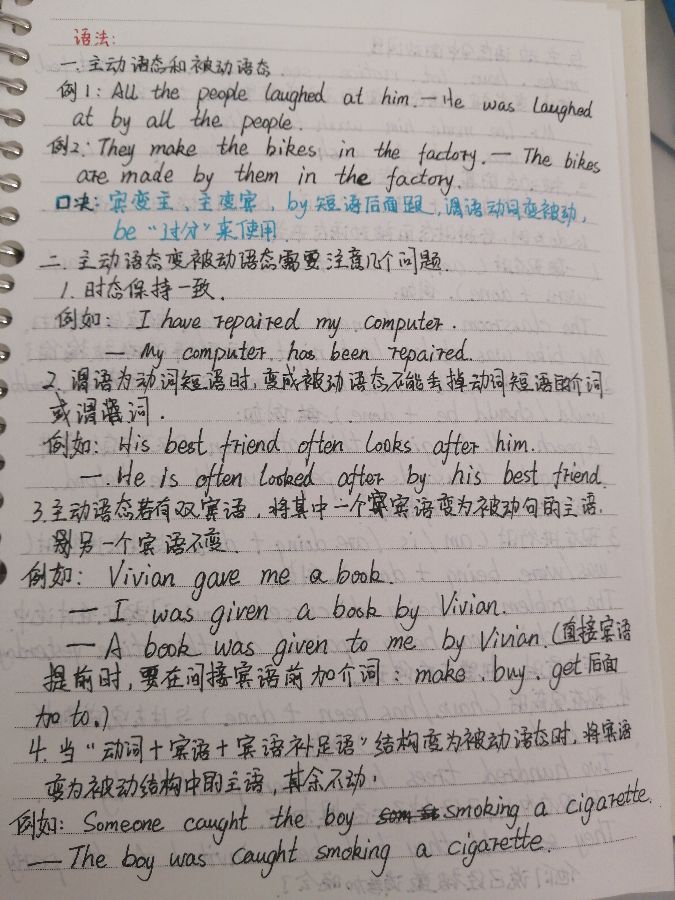 语法:
一.主动语态和被动语态
例1: All the people laughed at him.—He was laughed
at by all the people.
例2: They make the bikes in the factory.— The bikes
are made by them in the factory.
口决: 宾变主、主变宾, by短语后面跟, 谓语动词变被动,
be“过分”来使用.
二.主动语态变被动语态需要注意几个问题.
1.时态保持一致.
例如: I have repaired my computer.
— My computer has been repaired.
2.谓语为动词短语时,变成被动语态不能丢掉动词短语的介词
或副词.
例如: His best friend often looks after him.
—.He is often looked after by his best friend.
3.主动语态若有双宾语,将其中一个宾语变为被动句的主语.
另一个宾语不变.
例如: Vivian gave me a book.
— I was given a book by Vivian.
— A book was given to me by Vivian.(直接宾语
提前时,要在间接宾语前加介词: make.buy.get后面
加to.)
4.当“动词+宾语+宾语补足语”结构变为被动语态时,将宾语
变为被动结构中的主语,其余不动.
例如: Someone caught the boy smoking a cigarette.
— The boy was caught smoking a cigarette.